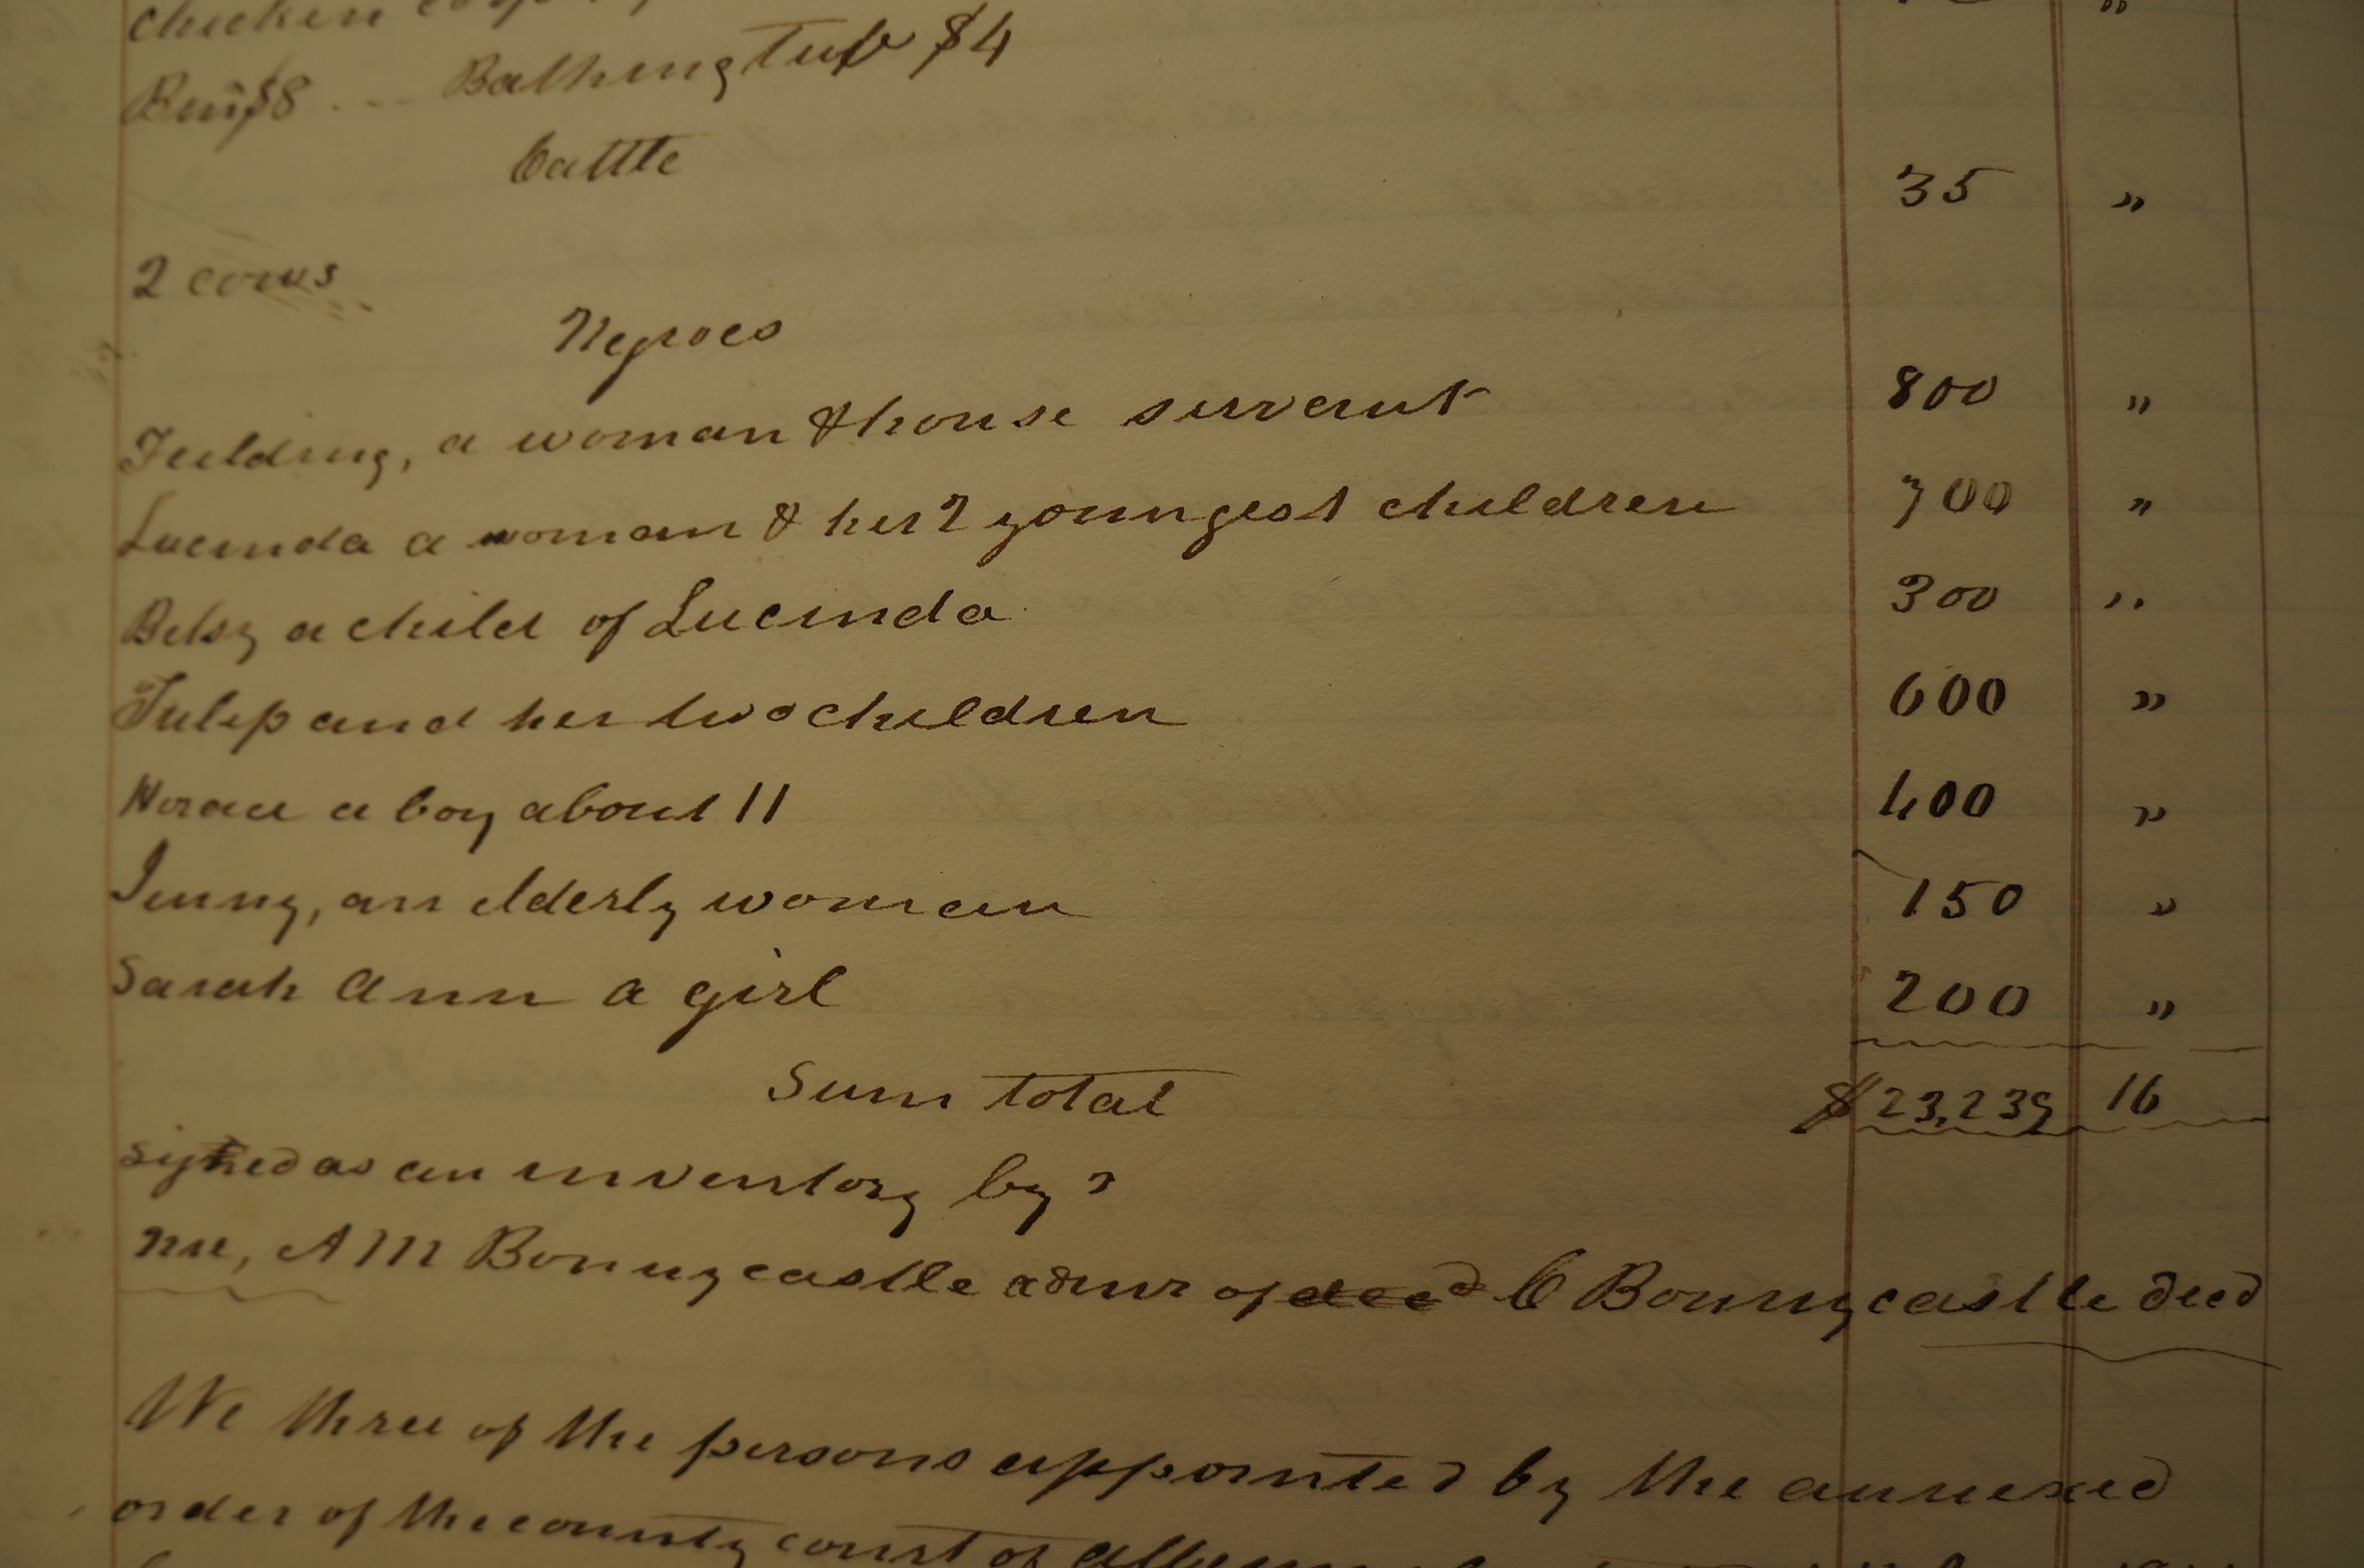 chicken coop
Bin $8 .... Bathing Tub $4 "
Cattle
2 cows 35 "
Negroes
Feilding, a woman & house servant 800 "
Lucinda a woman & her 2 youngest children 700 "
Betsy a child of Lucinda 300 "
Tulip and her two children 600 "
Horace a boy about 11 400 "
Jenny, an elderly woman 150 "
Sarah Ann a girl 200 "
Sum total $23,239 16
signed as an inventory by
me, A M Bonnycastle admr of C Bonnycastle decd
We three of the persons appointed by the annexed
order of the county court of